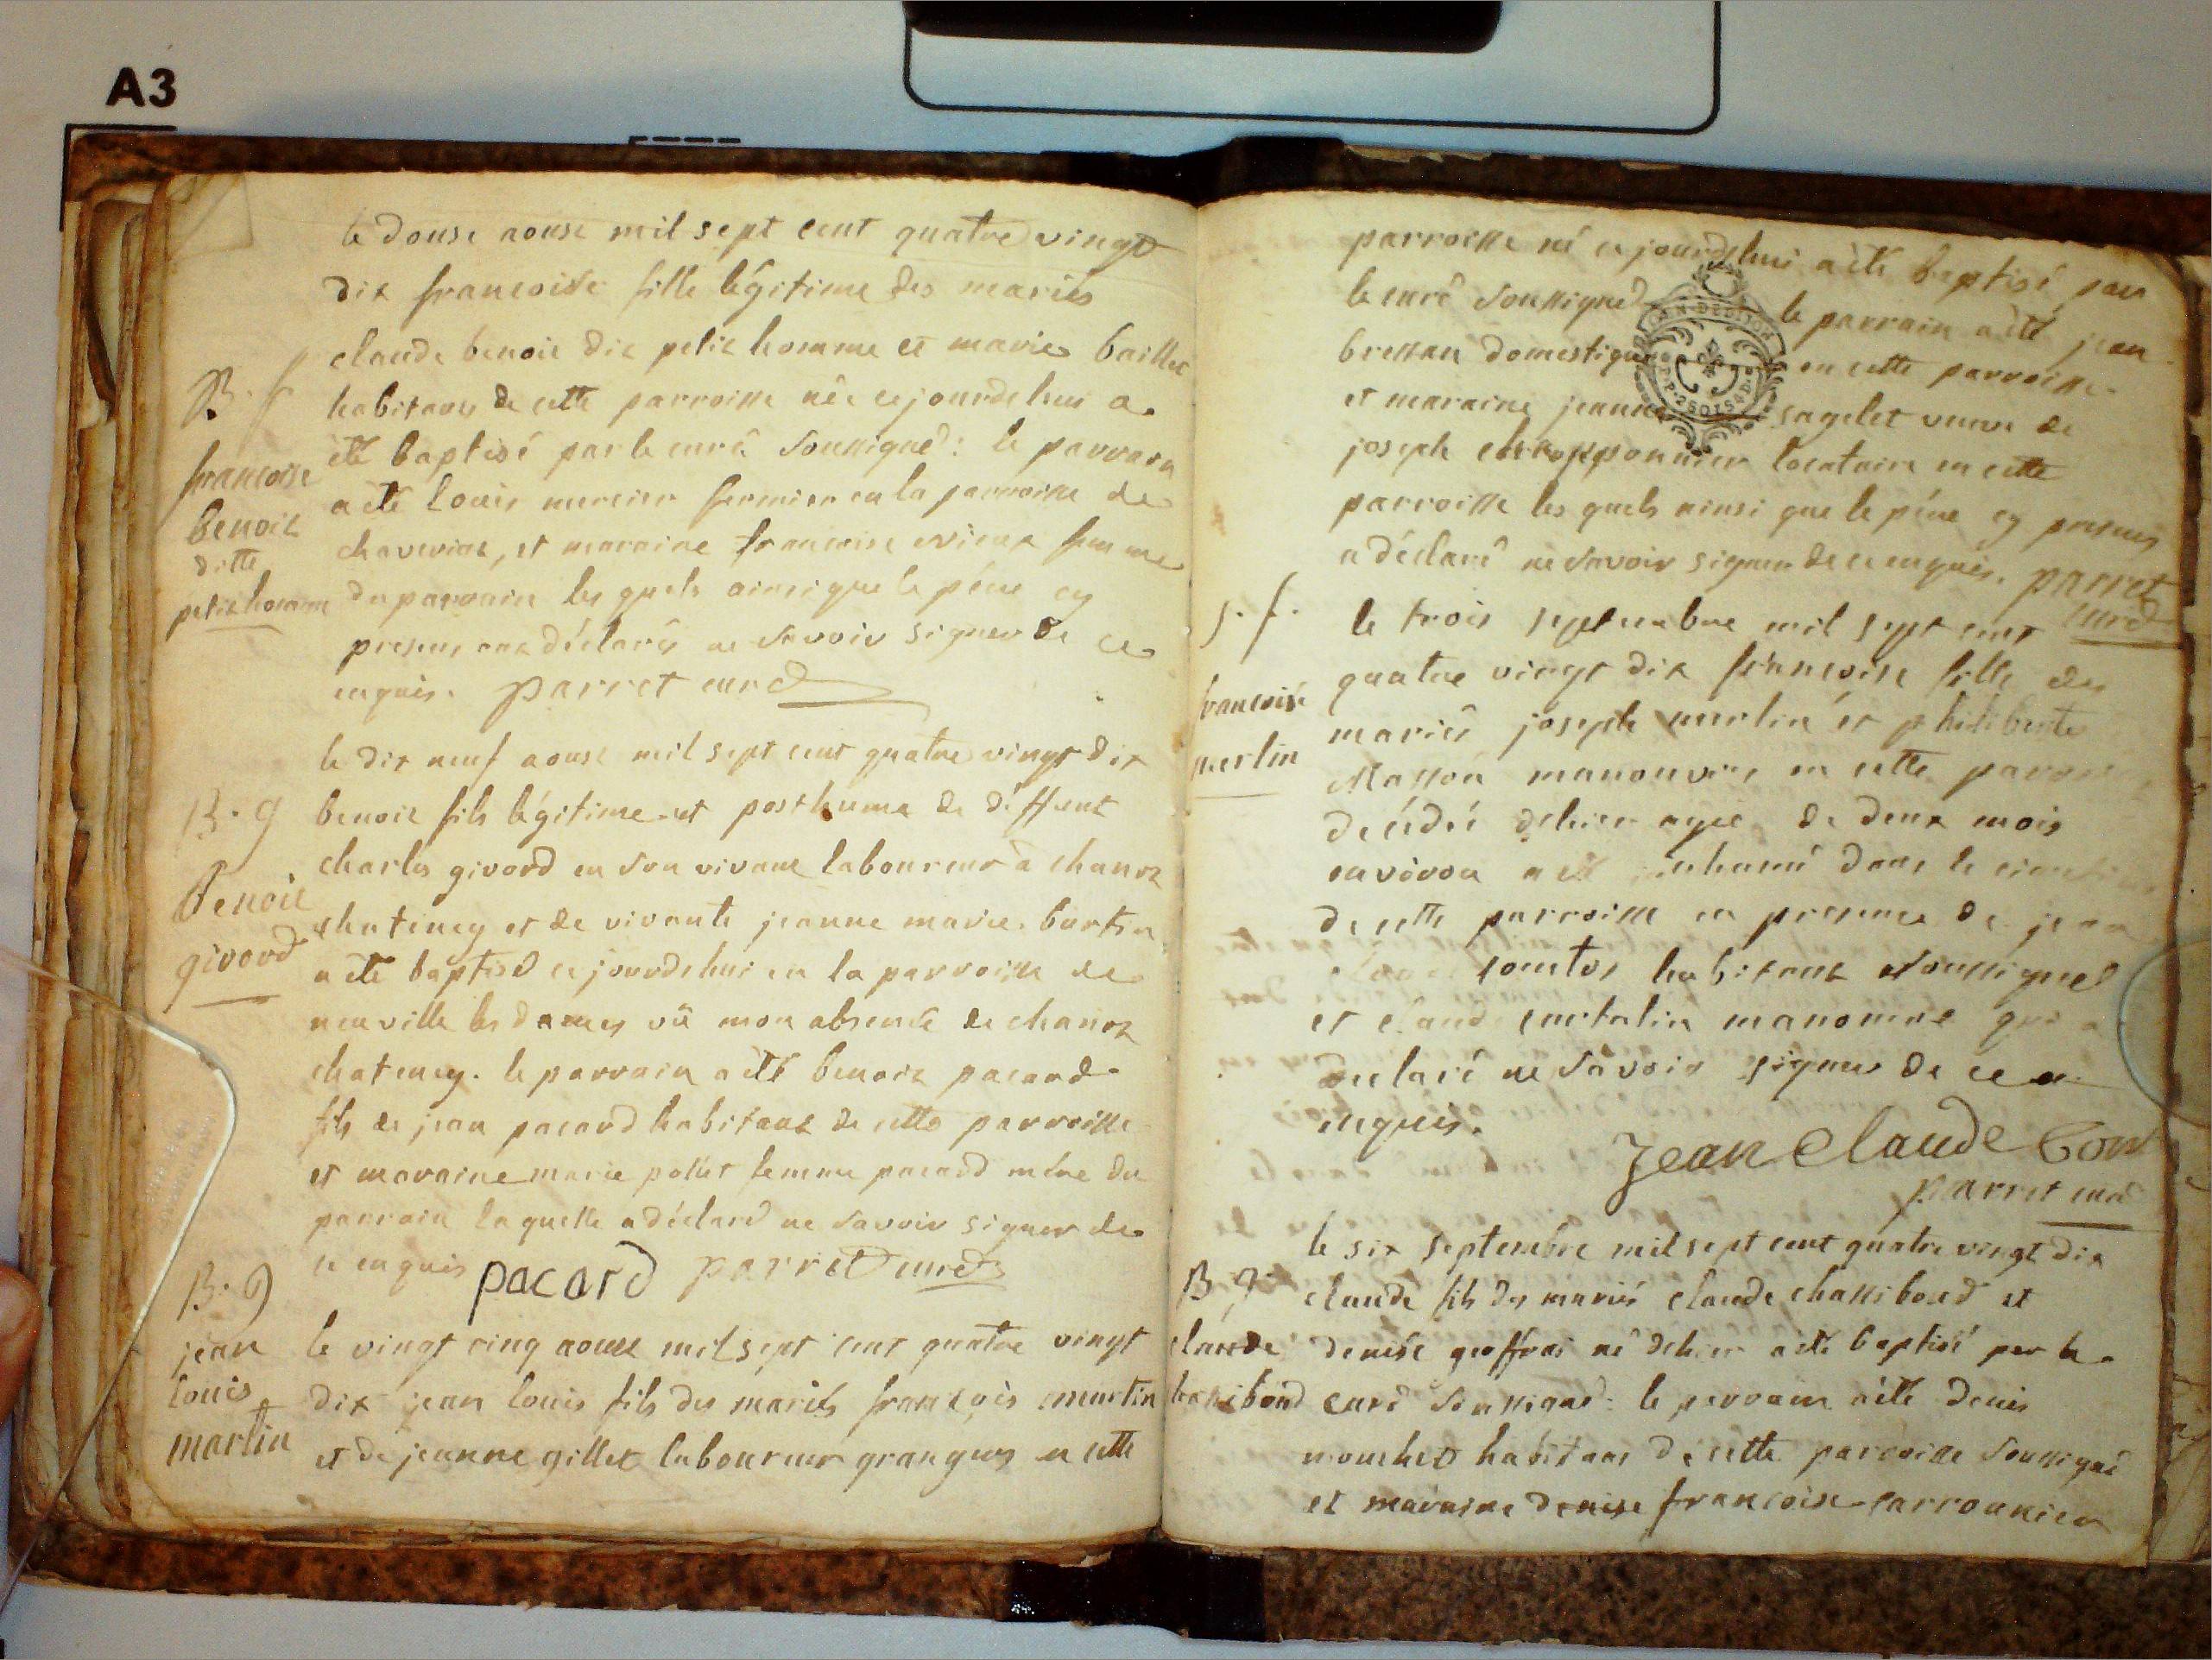 A3
le douse aoust mil sept cent quatre vingt
dix francoise fille légitime des mariés
claude benoit dit petit homme et marie baillet
B. f
habitans de cette parroisse née cejourdehui a
francoise
été baptisé par le curé soussigné: le parrain
benoit
a été Louis mercier fermier en la parroisse de
ditte
chaveriat, et maraine francoise femme
petithomme
du parrain les quels ainsi que le pére cy
presens ont déclarés ne savoir signer de ce
enquis. parret curé
le dix neuf aoust mil sept cent quatre vingt dix
B. g
benoit fils légitime et posthume de deffunt
charles givord en son vivant laboureur a chanoz
Benoit
chateney et de vivante jeanne marie
givord
a été baptisé cejourdehui en la parroisse de
neuville les dames vû mon absence de chanoz
chateney. le parrain a été benoit pacard
fils de jean pacard habitant de cette parroisse
et maraine marie pollet femme pacard mére du
parrain laquelle a déclaré ne savoir signer de
ce enquis pacard parret curé
B. g
jean
le vingt cinq aoust mil sept cent quatre vingt
louis
dix jean louis fils des mariés françois martin
martin
et de jeanne gillet laboureur granger en cette
parroisse né cejourdehui a été baptisé par
le curé soussigné le parrain a été jean
bressan domestique en cette parroisse
et maraine jeanne sagelet veuve de
joseph locataire en cette
parroisse les quels ainsi que le pére cy presens
a déclaré ne savoir signer de ce enquis. parret
curé
s. f.
le trois septembre mil sept cent
quatre vingt dix francoise fille des
francoise
mariés joseph merlin et philiberte
merlin
Masson manouvrier en cette parroisse
décédée dehier agée de deux mois
environ a été inhumé dans le
de cette parroisse en presence de jean
habitant soussigné
et claude manouvrier qui a
declaré ne savoir signer de ce
enquis.
jean claude Con
parret curé
le six septembre mil sept cent quatre vingt dix
B g
claude fils des mariés claude chassiboud et
claude
denise geoffrai né dehier a été baptisé par le
curé soussigné: le parrain a été denis
mouchet habitant de cette parroisse soussigné
et maraine denise francoise carronnier